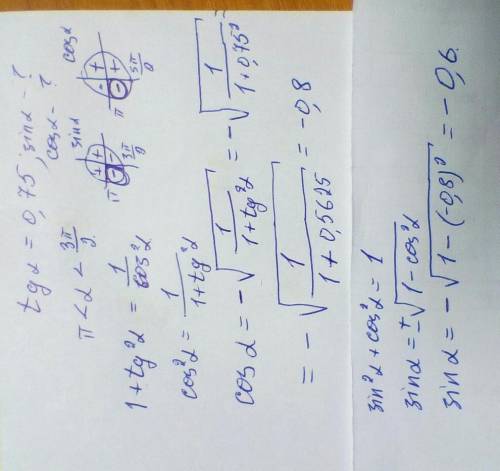 tg α = 0,75; sin α - ?
cos α - ?
π < α < 3π/2
sin α
cos α
+ +
- -
- +
- +
π
3π/2
π
3π/2
1 + tg²α = 1/cos²α
cos²α = 1/(1 + tg²α)
cos α = -√(1/(1 + tg²α)) = -√(1/(1 + 0,75²)) =
= -√(1/(1 + 0,5625)) = -0,8
sin²α + cos²α = 1
sin α = ±√(1 - cos²α)
sin α = -√(1 - (-0,8)²) = -0,6.